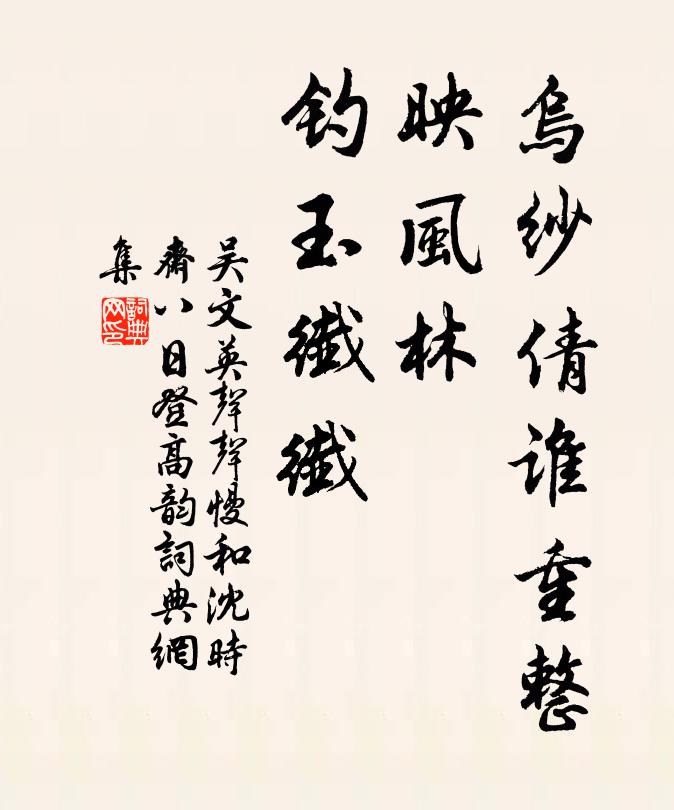 烏紗倩誰重整
映風林
釣玉纖纖
吴文英聲聲慢和沈時
齋八日登高韵詞典網
集
詞典
网印